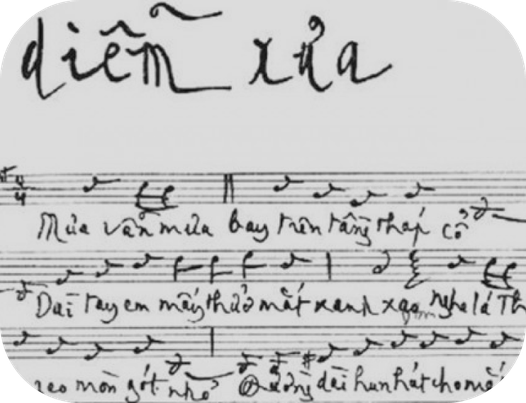 diễm xưa
Mưa vẫn mưa bay trên tầng tháp cổ
Dài tay em mấy thuở mắt xanh xao nghe lá Th
reo mòn gót nhỏ Đường dài hun hút cho mắt